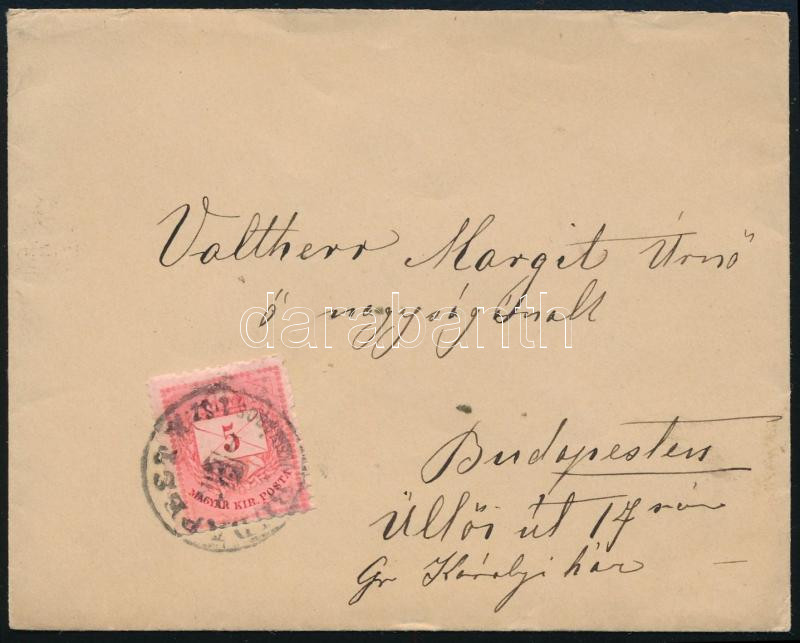 Valtherr Margit Úrnő
ő nagyságának
darabanth
Budapesten
Üllői út 17 szám
Gr Károlyi ház
5
MAGYAR KIR. POSTA
BUDAPEST